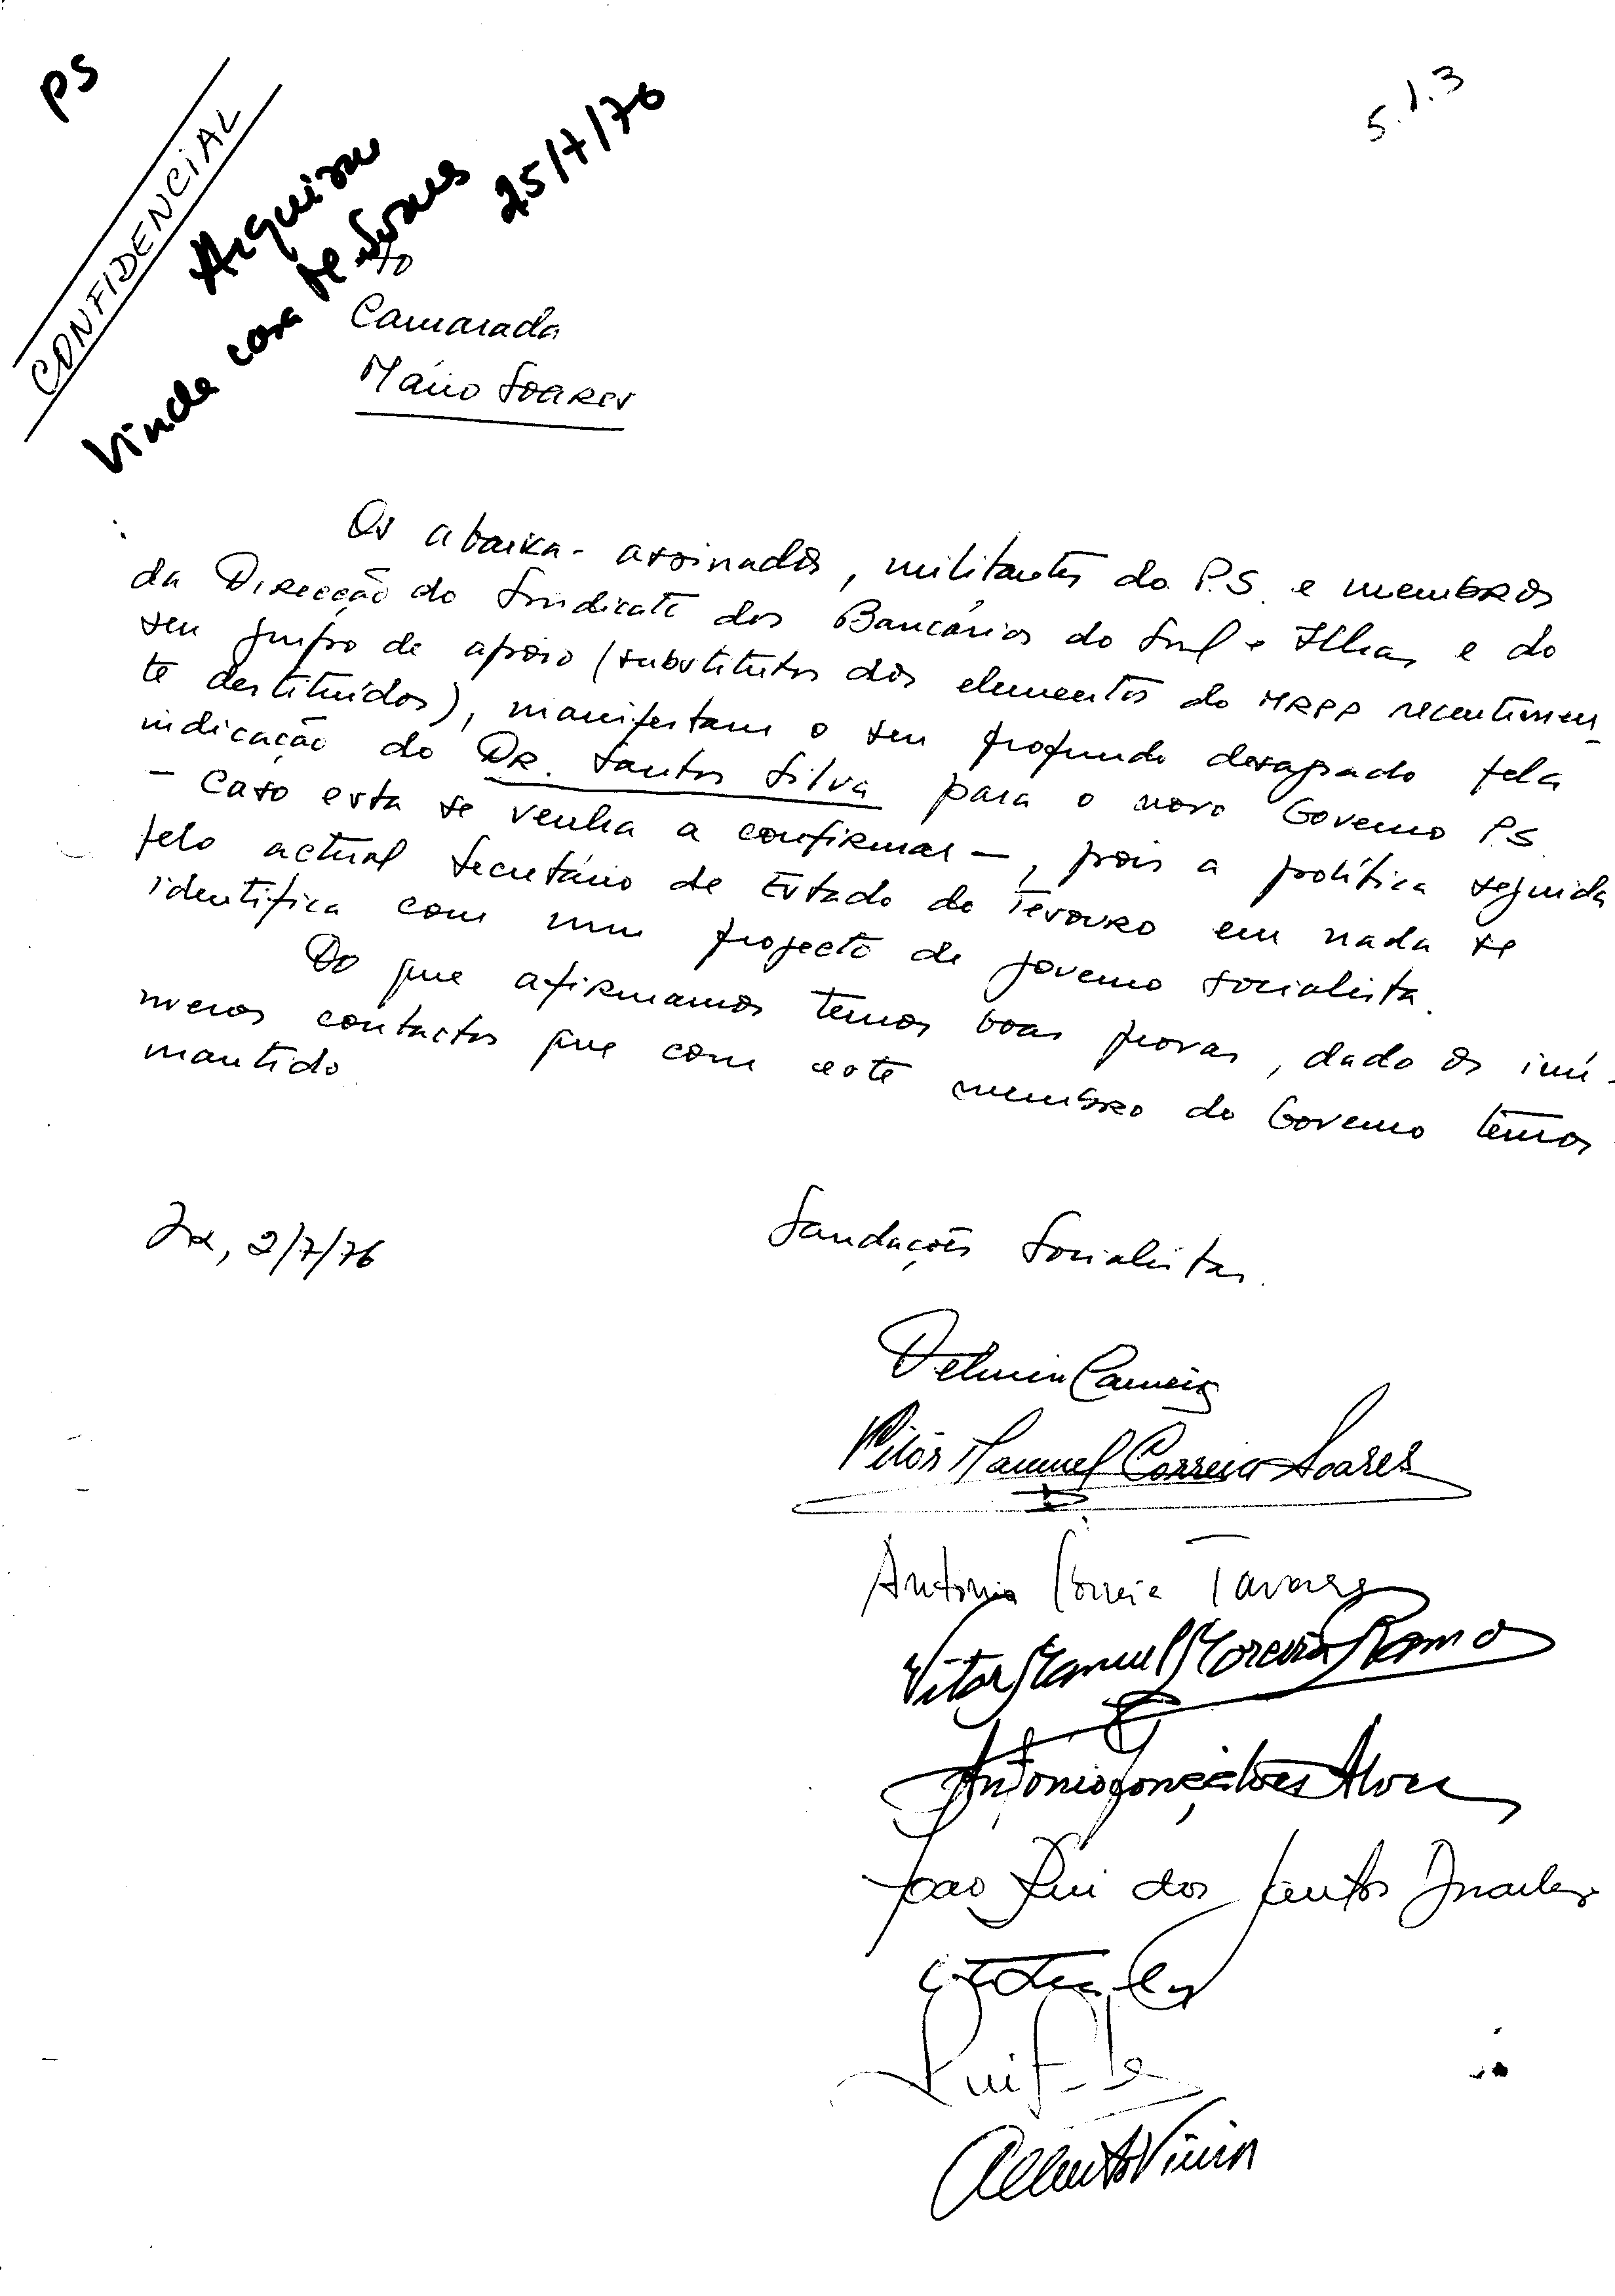 PS
CONFIDENCIAL
Arquivar
Vinda casa M. Soares
25/7/76
5.1.3
Ao
Camarada
Mário Soares
Os abaixa-assinados, militantes do P.S. e membros
da Direcção do Sindicato dos Bancários do Sul e Ilhas, e do
seu grupo de apoio (substitutos dos elementos do MRPP recentemen_
te destituídos), manifestam o seu profundo desagrado pela
indicação do DR. Santos Silva para o novo Governo P.S.
- caso esta se venha a confirmar -, pois a política seguida
pelo actual Secretário de Estado do Tesouro em nada se
identifica com um projecto de governo socialista.
Do que afirmamos temos boas provas, dado os inú-
meros contactos que com este membro do Governo temos
mantido
Lx, 2/7/76
Saudações Socialistas.
Delmiro Carreira
Vitor Manuel Correia Soares
António Correia Tavares
Vitor Manuel Moreira Ramo
António Gonçalves Alves
João Rui dos Santos
Alberto Vieira